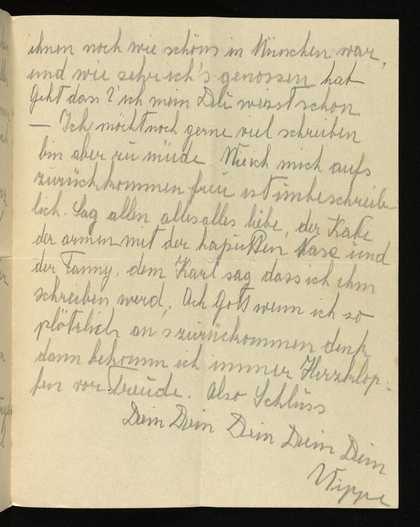 ihnen noch wie schöns in München war,
und wie sehr ich's genossen hab
Geht das? ich mein Du weisst schon
— Ich möcht noch gerne viel schreiben
bin aber zu müde Wie ich mich aufs
zurückkommen freu ist unbeschreib
lich. Sag allen alles alles liebe, der Käte
der armen mit der kaputten Nase und
der Fanny, dem Karl sag dass ich ihm
schreiben werd, Ach Gott wenn ich so
plötzlich an's zurückommen denk,
dann bekomm ich immer Herzklop-
fen vor Freude. Also Schluss
Dein Dein Dein Dein Dein